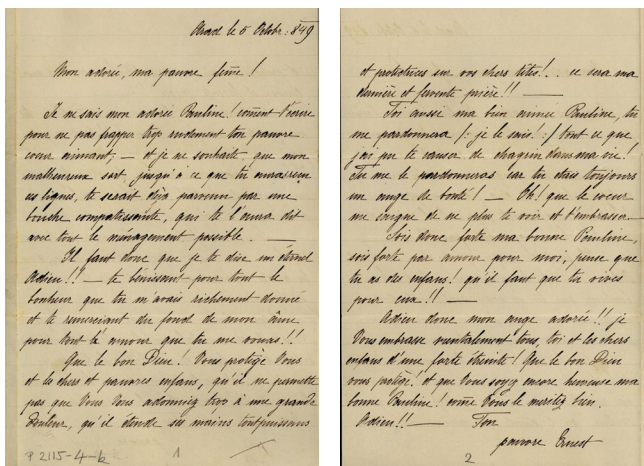 Arad le 5 Octobr: 849
Mon adorée, ma pauvre femme!
Je ne sais mon adorée Pauline! coment t'écrire
pour ne pas frapper trop rudement ton pauvre
coeur aimant, — et je ne souhaite que mon
malheureux sort, jusqu'à ce que tu auras reçu
ces lignes, te serait déja parvenu par une
bouche compatissante, qui te l'aura dit
avec tout le ménagement possible. —
Il faut donc que je te dise un éternel
Adieu!! — te bénissant pour tout le
bonheur que tu m'avais richement donné
et te remerciant du fond de mon âme
pour tout l'amour que tu me vouas!!
Que le bon Dieu! Vous protège Vous
et les chers et pauvres enfans, qu'il ne permette
pas que Vous Vous adonniez trop à une grande
douleur, qu'il étende ses mains toutpuissans
P 2115-4-k 1
et protectrices sur vos chers têtes!.. ce sera ma
dernière et fervente prière!! —
Toi aussi ma bien aimée Pauline, tu
me pardonnera /: je le sais :/ tout ce que
j'ai pu te causer de chagrin dans ma vie!
Tu me le pardonneras car tu étais toujours
un ange de bonté! — Oh! que le coeur
me saigne de ne plus te voir et t'embrasser —
Sois donc forte ma bonne Pauline,
sois forte par amour pour moi, pense que
tu as des enfans! qu'il faut que tu vives
pour eux!! —
Adieu donc mon ange adorée!! je
Vous embrasse mentalement tous, toi et les chers
enfans d'une forte étreinte! Que le bon Dieu
vous protège! et que Vous soyez encore heureuse ma
bonne Pauline! come Vous le meritez bien.
Adieu!! — Ton
pauvre Ernest
2